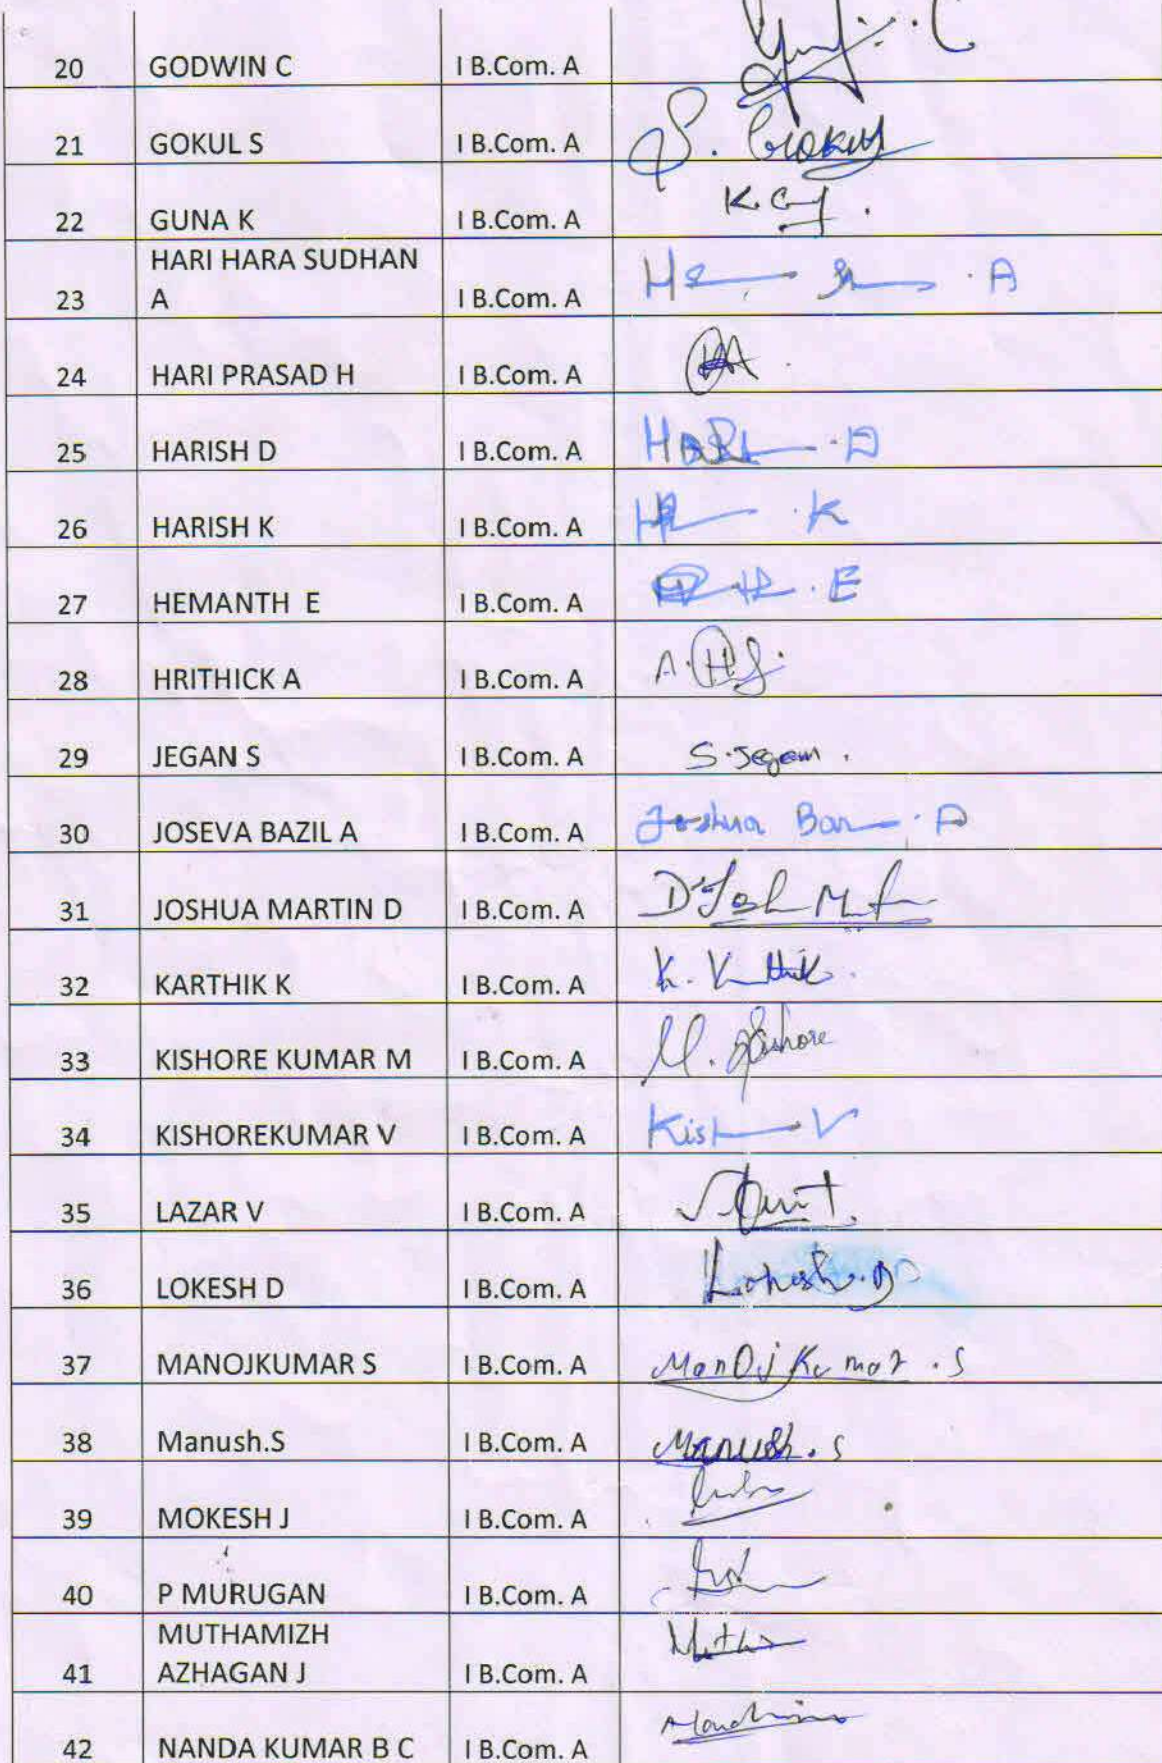 20 GODWIN C I B.Com. A
21 GOKUL S I B.Com. A S. Gokul
22 GUNA K I B.Com. A
HARI HARA SUDHAN
23 A I B.Com. A
24 HARI PRASAD H I B.Com. A
25 HARISH D I B.Com. A
26 HARISH K I B.Com. A
27 HEMANTH E I B.Com. A
28 HRITHICK A I B.Com. A
29 JEGAN S I B.Com. A S. Jegan.
30 JOSEVA BAZIL A I B.Com. A Joshua
31 JOSHUA MARTIN D I B.Com. A
32 KARTHIK K I B.Com. A
33 KISHORE KUMAR M I B.Com. A M. Kishore
34 KISHOREKUMAR V I B.Com. A
35 LAZAR V I B.Com. A
36 LOKESH D I B.Com. A Lokesh.D
37 MANOJKUMAR S I B.Com. A ManOj Kumar . S
38 Manush.S I B.Com. A Manush. S
39 MOKESH J I B.Com. A
40 P MURUGAN I B.Com. A
MUTHAMIZH
41 AZHAGAN J I B.Com. A
42 NANDA KUMAR B C I B.Com. A